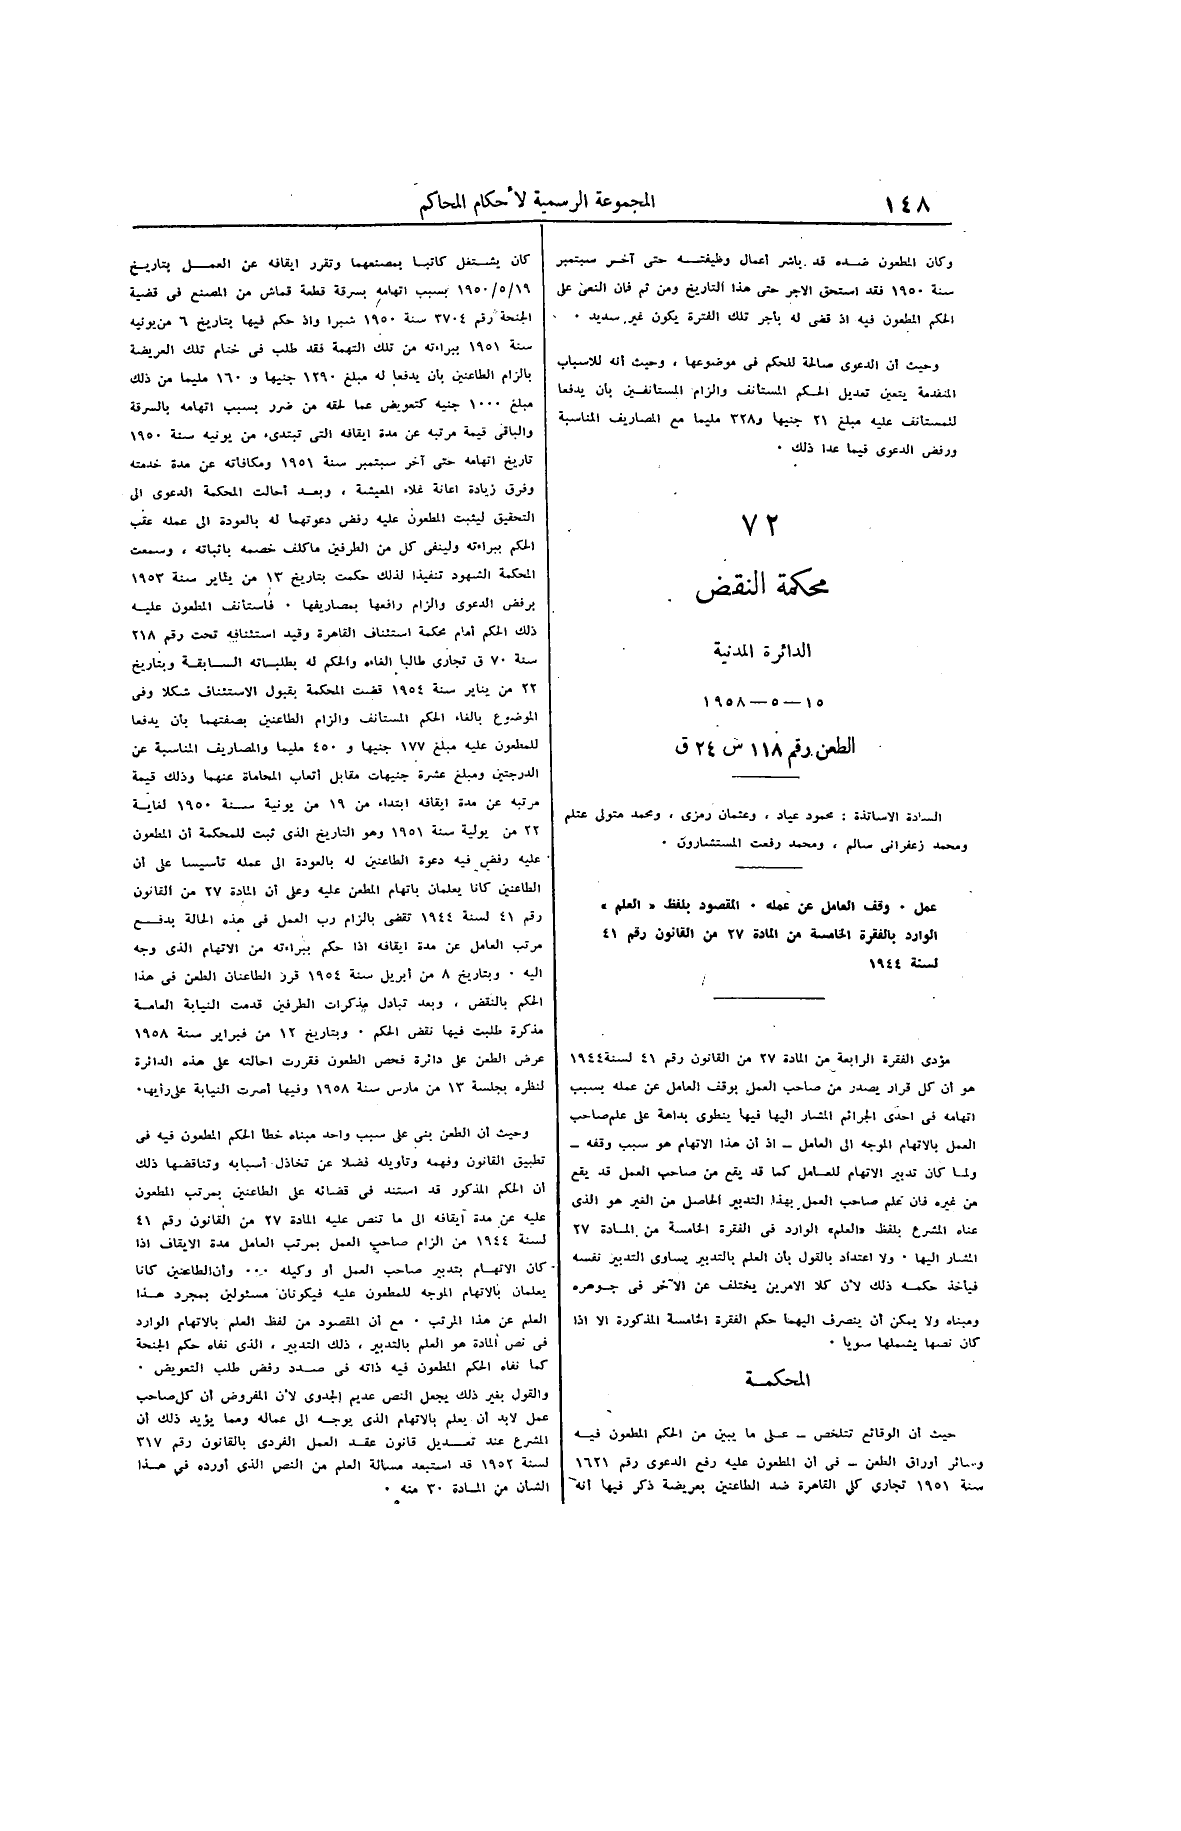 ١٤٨
المجموعة الرسمية لأحكام المحاكم
وكان المطعون ضده قد باشر أعمال وظيفته حتى آخر سبتمبر
سنة ١٩٥٠ فقد استحق الاجر حتى هذا التاريخ ومن ثم فان النعى على
الحكم المطعون فيه اذ قضى له بأجر تلك الفترة يكون غير سديد ٠
وحيث أن الدعوى صالحة للحكم فى موضوعها ، وحيث أنه للاسباب
المتقدمة يتعين تعديل الحكم المستأنف والزام المستأنفين بأن يدفعا
للمستأنف عليه مبلغ ٢١ جنيها و٣٢٨ مليما مع المصاريف المناسبة
ورفض الدعوى فيما عدا ذلك ٠
٧٢
محكمة النقض
الدائرة المدنية
١٥ — ٥ — ١٩٥٨
الطعن رقم ١١٨ س ٢٤ ق
السادة الاساتذة : محمود عياد ، وعثمان رمزى ، ومحمد متولى عتلم
ومحمد زعفرانى سالم ، ومحمد رفعت المستشارون ٠
عمل ٠ وقف العامل عن عمله ٠ المقصود بلفظ « العلم »
الوارد بالفقرة الخامسة من المادة ٢٧ من القانون رقم ٤١
لسنة ١٩٤٤
مؤدى الفقرة الرابعة من المادة ٢٧ من القانون رقم ٤١ لسنة١٩٤٤
هو أن كل قرار يصدر من صاحب العمل بوقف العامل عن عمله بسبب
اتهامه فى احدى الجرائم المشار اليها فيها ينطوى بداهة على علم صاحب
العمل بالاتهام الموجه الى العامل ــ اذ أن هذا الاتهام هو سبب وقفه ــ
ولما كان تدبير الاتهام للعامل كما قد يقع من صاحب العمل قد يقع
من غيره فان علم صاحب العمل بهذا التدبير الحاصل من الغير هو الذى
عناه المشرع بلفظ «العلم» الوارد فى الفقرة الخامسة من المادة ٢٧
المشار اليها ٠ ولا اعتداد بالقول بأن العلم بالتدبير يساوى التدبير نفسه
فيأخذ حكمه ذلك لأن كلا الامرين يختلف عن الآخر فى جوهره
ومبناه ولا يمكن أن ينصرف اليهما حكم الفقرة الخامسة المذكورة الا اذا
كان نصها يشملها سويا ٠
المحكمة
حيث أن الوقائع تتلخص ــ على ما يبين من الحكم المطعون فيه
وسائر أوراق الطعن ــ فى أن المطعون عليه رفع الدعوى رقم ١٦٢١
سنة ١٩٥١ تجارى كلى القاهرة ضد الطاعنين بعريضة ذكر فيها أنه
كان يشتغل كاتبا بمصنعهما وتقرر ايقافه عن العمل بتاريخ
١٩٥٠/٥/١٩ بسبب اتهامه بسرقة قطعة قماش من المصنع فى قضية
الجنحة رقم ٣٧٠٤ سنة ١٩٥٠ شبرا واذ حكم فيها بتاريخ ٦ من يونيه
سنة ١٩٥١ ببراءته من تلك التهمة فقد طلب فى ختام تلك العريضة
بالزام الطاعنين بأن يدفعا له مبلغ ١٢٩٠ جنيها و ١٦٠ مليما من ذلك
مبلغ ١٠٠٠ جنيه كتعويض عما لحقه من ضرر بسبب اتهامه بالسرقة
والباقى قيمة مرتبه عن مدة ايقافه التى تبتدىء من يونيه سنة ١٩٥٠
تاريخ اتهامه حتى آخر سبتمبر سنة ١٩٥١ ومكافأته عن مدة خدمته
وفرق زيادة اعانة غلاء المعيشة ، وبعد أحالت المحكمة الدعوى الى
التحقيق ليثبت المطعون عليه رفض دعوتهما له بالعودة الى عمله عقب
الحكم ببراءته ولينفى كل من الطرفين ماكلف خصمه باثباته ، وسمعت
المحكمة الشهود تنفيذا لذلك حكمت بتاريخ ١٣ من يناير سنة ١٩٥٣
برفض الدعوى والزام رافعها بمصاريفها ٠ فاستأنف المطعون عليه
ذلك الحكم أمام محكمة استئناف القاهرة وقيد استئنافه تحت رقم ٢١٨
سنة ٧٠ ق تجارى طالبا الغاءه والحكم له بطلباته السابقة وبتاريخ
٢٢ من يناير سنة ١٩٥٤ قضت المحكمة بقبول الاستئناف شكلا وفى
الموضوع بالغاء الحكم المستأنف والزام الطاعنين بصفتهما بأن يدفعا
للمطعون عليه مبلغ ١٧٧ جنيها و ٤٥٠ مليما والمصاريف المناسبة عن
الدرجتين ومبلغ عشرة جنيهات مقابل أتعاب المحاماة عنهما وذلك قيمة
مرتبه عن مدة ايقافه ابتداء من ١٩ من يونية سنة ١٩٥٠ لغاية
٢٢ من يولية سنة ١٩٥١ وهو التاريخ الذى ثبت للمحكمة أن المطعون
عليه رفض فيه دعوة الطاعنين له بالعودة الى عمله تأسيسا على أن
الطاعنين كانا يعلمان باتهام المطعن عليه وعلى أن المادة ٢٧ من القانون
رقم ٤١ لسنة ١٩٤٤ تقضى بالزام رب العمل فى هذه الحالة بدفع
مرتب العامل عن مدة ايقافه اذا حكم ببراءته من الاتهام الذى وجه
اليه ٠ وبتاريخ ٨ من أبريل سنة ١٩٥٤ قرر الطاعنان الطعن فى هذا
الحكم بالنقض ، وبعد تبادل مذكرات الطرفين قدمت النيابة العامة
مذكرة طلبت فيها نقض الحكم ٠ وبتاريخ ١٢ من فبراير سنة ١٩٥٨
عرض الطعن على دائرة فحص الطعون فقررت احالته على هذه الدائرة
لنظره بجلسة ١٣ من مارس سنة ١٩٥٨ وفيها أصرت النيابة على رأيها٠
وحيث أن الطعن بنى على سبب واحد مبناه خطأ الحكم المطعون فيه فى
تطبيق القانون وفهمه وتأويله فضلا عن تخاذل أسبابه وتناقضها ذلك
أن الحكم المذكور قد استند فى قضائه على الطاعنين بمرتب المطعون
عليه عن مدة ايقافه الى ما تنص عليه المادة ٢٧ من القانون رقم ٤١
لسنة ١٩٤٤ من الزام صاحب العمل بمرتب العامل مدة الايقاف اذا
كان الاتهام بتدبير صاحب العمل أو وكيله ٠٠٠ وأن الطاعنين كانا
يعلمان بالاتهام الموجه للمطعون عليه فيكونان مسئولين بمجرد هذا
العلم عن هذا المرتب ٠ مع أن المقصود من لفظ العلم بالاتهام الوارد
فى نص المادة هو العلم بالتدبير ، ذلك التدبير ، الذى نفاه حكم الجنحة
كما نفاه الحكم المطعون فيه ذاته فى صدد رفض طلب التعويض ٠
والقول بغير ذلك يجعل النص عديم الجدوى لأن المفروض أن كل صاحب
عمل لابد أن يعلم بالاتهام الذى يوجه الى عماله ومما يؤيد ذلك أن
المشرع عند تعديل قانون عقد العمل الفردى بالقانون رقم ٣١٧
لسنة ١٩٥٢ قد استبعد مسألة العلم من النص الذى أورده في هذا
الشأن من المادة ٣٠ منه ٠